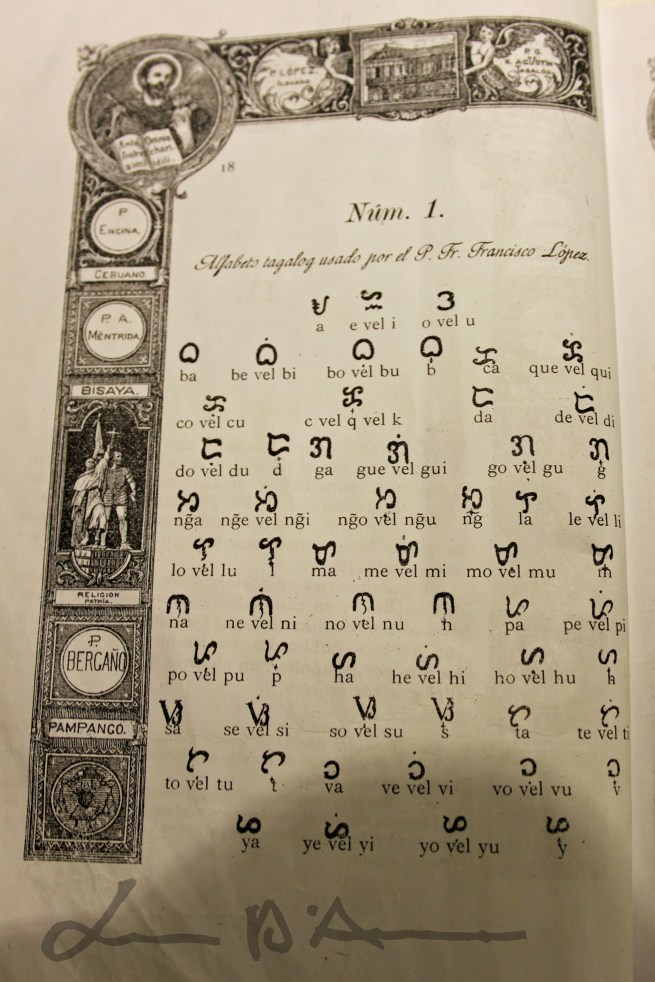 P. LÓPEZ
ILOCANO
P. G.
S. AGUSTIN
18
P.
ENCINA,
CEBUANO.
P. A.
MÉNTRIDA
BISAYA.
RELIGION
PATRIA.
P.
BERGAÑO
PAMPANGO.
Núm. 1.
Alfabeto tagalog usado por el P. Fr. Francisco López.
ᜀ ᜁ ᜂ
a e vel i o vel u
ᜊ ᜊᜒ ᜊᜓ ᜊ᜔ ᜃ ᜃᜒ
ba be vel bi bo vel bu b ca que vel qui
ᜃᜓ ᜃ᜔ ᜇ ᜇᜒ
co vel cu c vel q vel k da de vel di
ᜇᜓ ᜇ᜔ ᜄ ᜄᜒ ᜄᜓ ᜄ᜔
do vel du d ga gue vel gui go vel gu g
ᜅ ᜅᜒ ᜅᜓ ᜅ᜔ ᜎ ᜎᜒ
ng̃a ng̃e vel ng̃i ng̃o vel ng̃u ng̃ la le vel li
ᜎᜓ ᜎ᜔ ᜋ ᜋᜒ ᜋᜓ ᜋ᜔
lo vel lu l ma me vel mi mo vel mu m
ᜈ ᜈᜒ ᜈᜓ ᜈ᜔ ᜉ ᜉᜒ
na ne vel ni no vel nu n pa pe vel pi
ᜉᜓ ᜉ᜔ ᜑ ᜑᜒ ᜑᜓ ᜑ᜔
po vel pu p ha he vel hi ho vel hu h
ᜐ ᜐᜒ ᜐᜓ ᜐ᜔ ᜆ ᜆᜒ
sa se vel si so vel su s ta te vel ti
ᜆᜓ ᜆ᜔ ᜏ ᜏᜒ ᜏᜓ ᜏ᜔
to vel tu t va ve vel vi vo vel vu v
ᜌ ᜌᜒ ᜌᜓ ᜌ᜔
ya ye vel yi yo vel yu y